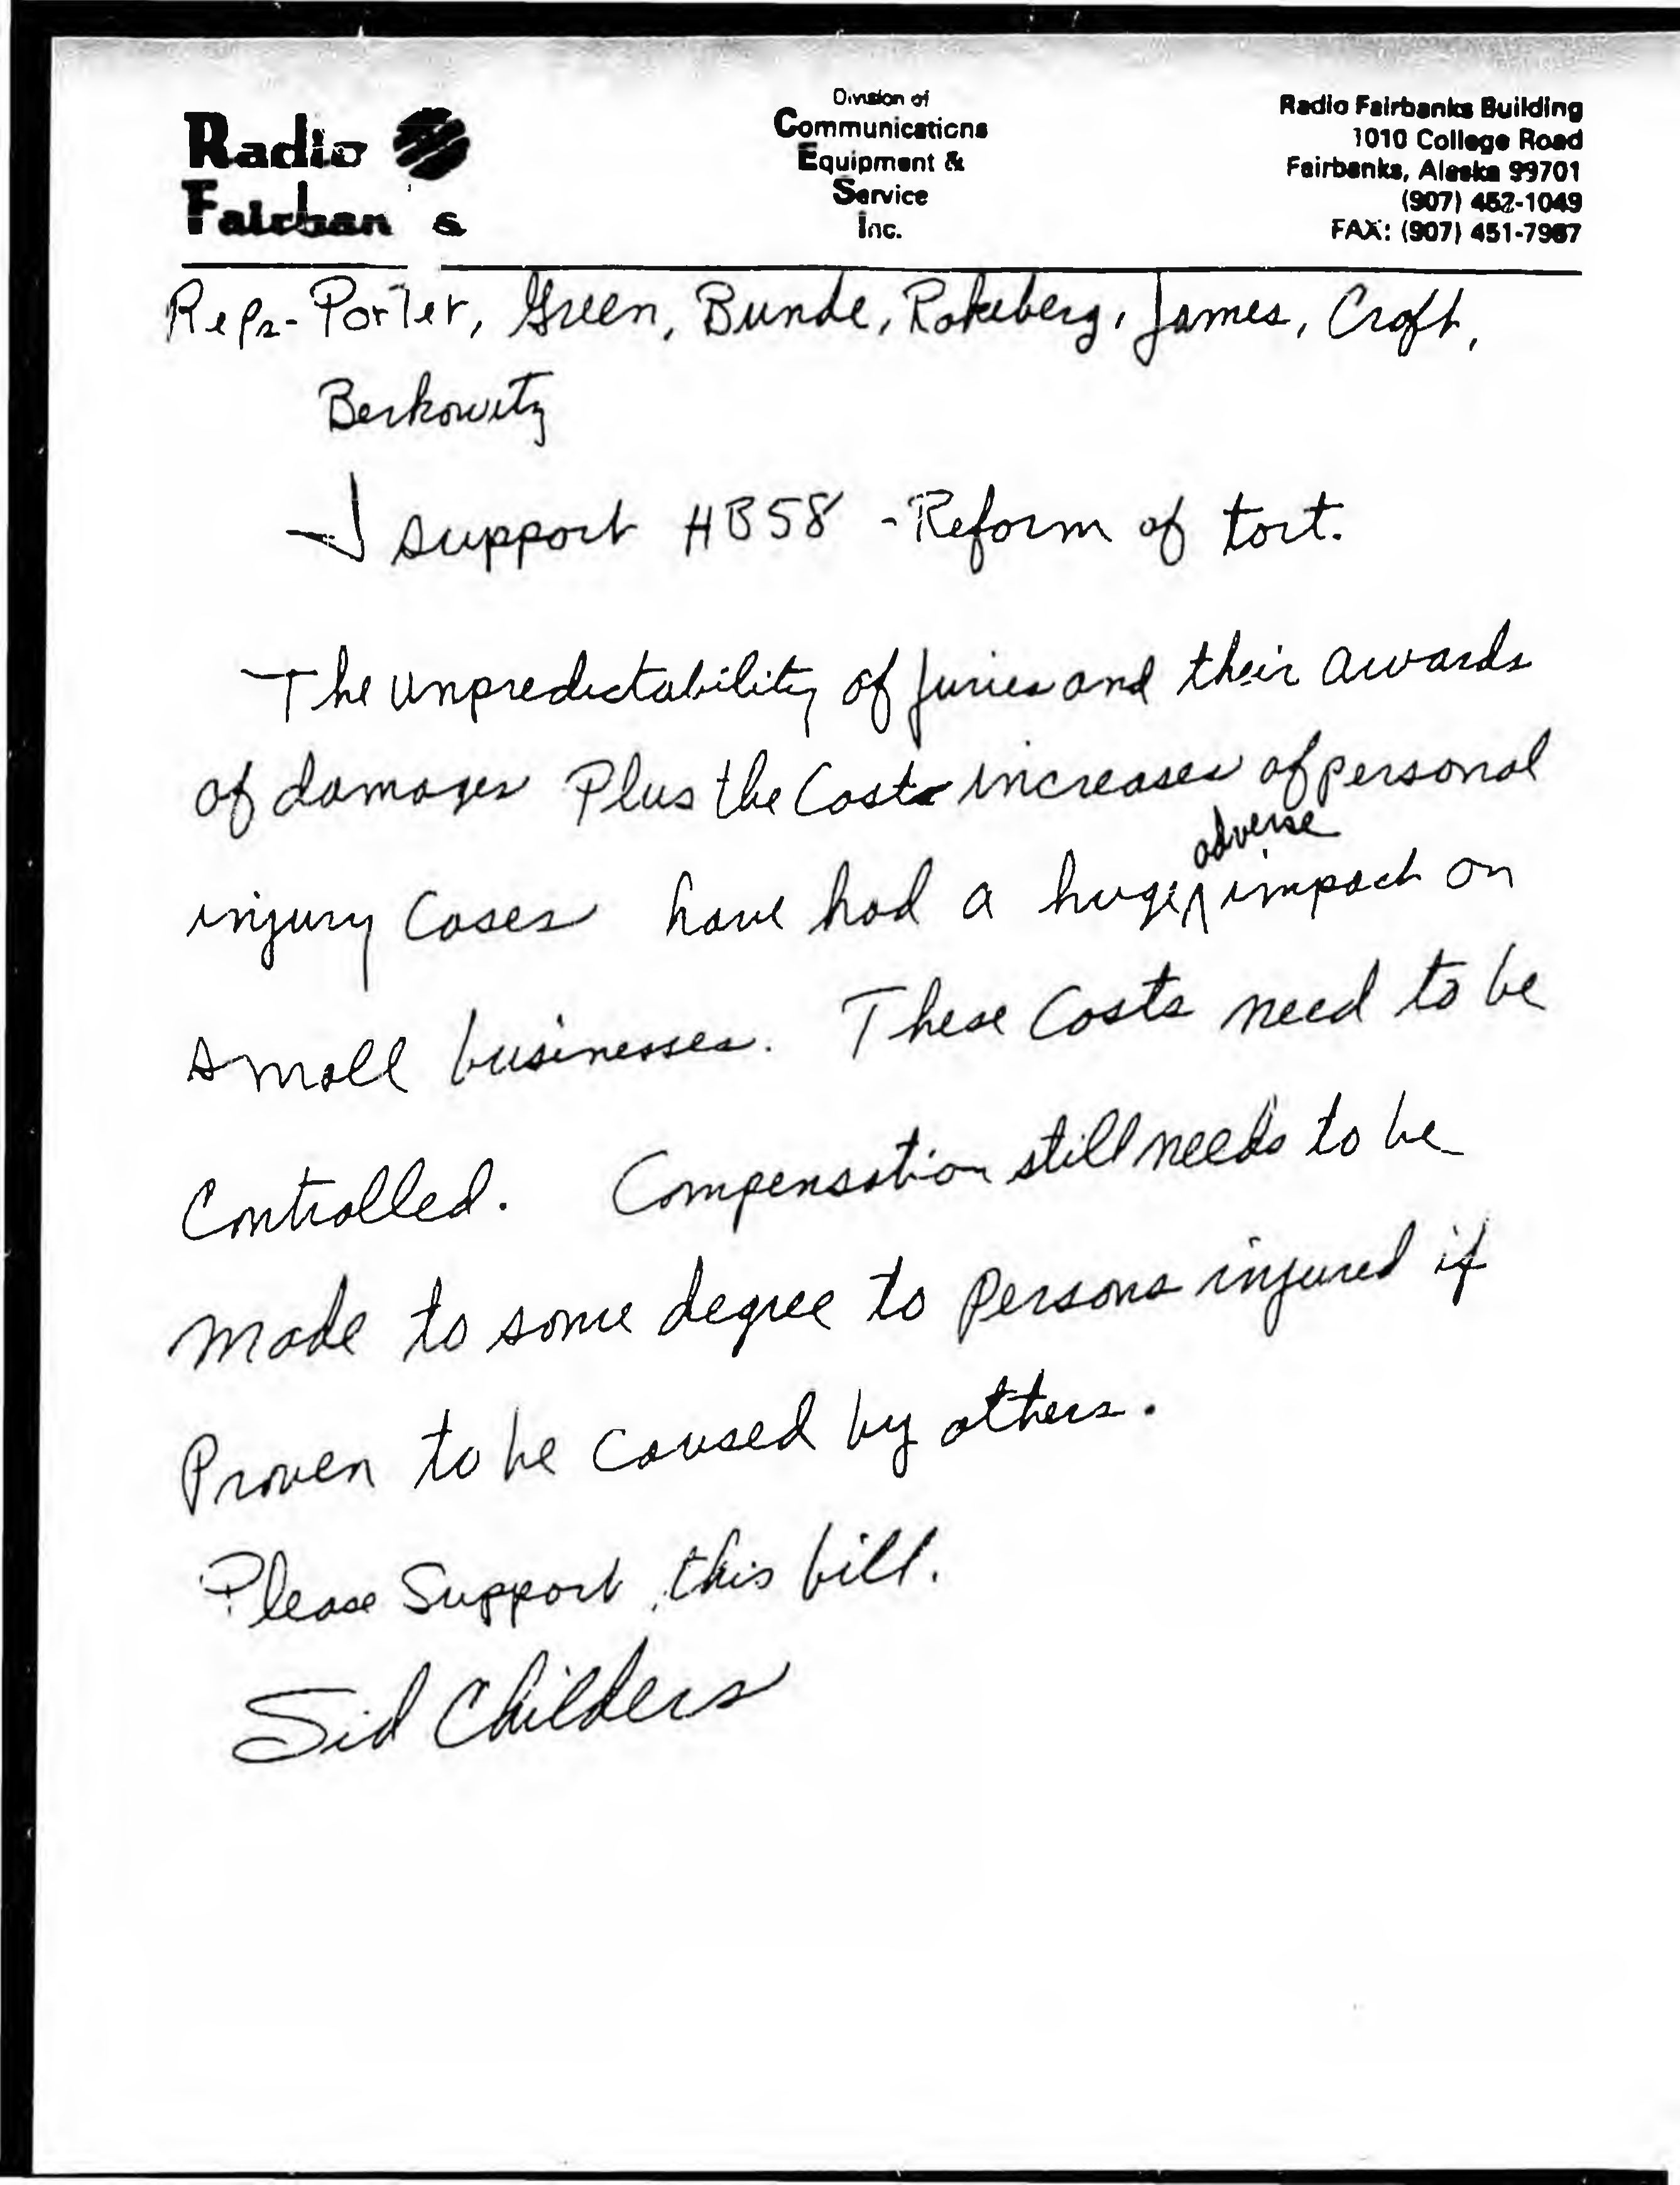 Radio
Fairban s
Division of
Communications
Equipment &
Service
Inc.
Radio Fairbanks Building
1010 College Road
Fairbanks, Alaska 99701
(907) 452-1049
FAX: (907) 451-7987
Reps- Porter, Green, Bunde, Rokeberg, James, Croft,
Berkowitz
I support HB58 - Reform of tort.
The unpredictability of juries and their awards
of damages Plus the Costs increases of personal
injury Cases have had a huge adverse impact on
small businesses. These Costs need to be
Controlled. Compensation still needs to be
made to some degree to Persons injured if
Proven to be caused by others.
Please Support this bill.
Sid Childers